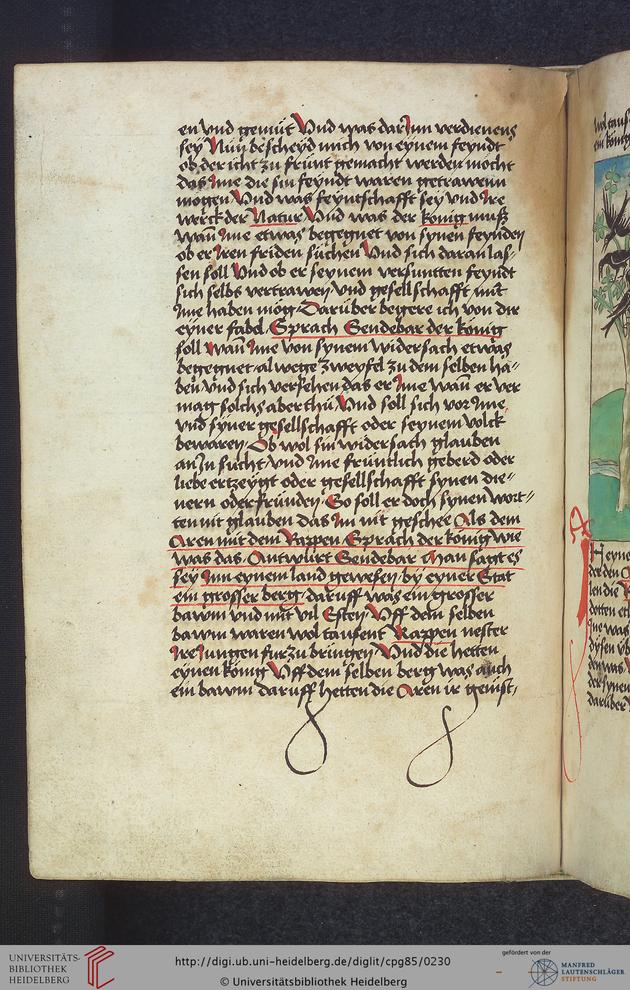 en vnd gemüt Vnd was darInn verdienens
sey Nuͦn bescheyd mich von eynem feyndt
ob der icht zu früntt gemacht werden mo̊cht
das Ime die sin feyndt waren getrawenn
mogen Vnd was feyntschafft sey vnd Ire
werck der Natur Vnd was der konig muß
wan̄ Ime etwas begegnet von synen feynden
ob er Iren friden suchen Vnd sich daran las-
sen soll Vnd ob er seynem versuntten feyndt
sich selbs vertrawen vnd gesellschafft mit
Ime haben mo̊g Daruber begere ich von dir
eyner fabel Sprach Sendebar der konig
soll wan̄ Ime von synem widersach etwas
begegnet alwege zweyfel zu dem selben ha-
ben vnd sich versehen das er Ime wan̄ er ver
mag solchs aber thu Vnd soll sich vor Ime
vnd syner gesellschafft oder seynem volck
bewaren Ob wol sin widersach glauben
an In sucht vnd Ime früntlich geberd oder
liebe ertzeygt oder gesellschafft synen die-
nern oder frunden So soll er doch synen wor-
ten nit glauben das Im nit geschee Als dem
Aren mit dem Rappen Sprach der konig wie
was das Antwurt Sendebar Man sagt es
sey Inn eynem land gewesen by eyner Stat
ein grosser berg daruff was ein grosser
bawm vnd mit vil Esten Vff dem selben
bawm waren wol tausent Rappen nester
Ire Jungen furzubringen Vnd die hetten
eynen konig Vff dem selben berg was auch
ein bawm daruff hetten die Aren ir genist
wol taus
ein konig
Heyne
der den
len die
dotten
Ime was
dysen vb
den was
der synen
daruber
UNIVERSITÄTS-
BIBLIOTHEK
HEIDELBERG
http://digi.ub.uni-heidelberg.de/diglit/cpg85/0230
© Universitätsbibliothek Heidelberg
gefördert von der
MANFRED
LAUTENSCHLÄGER
STIFTUNG